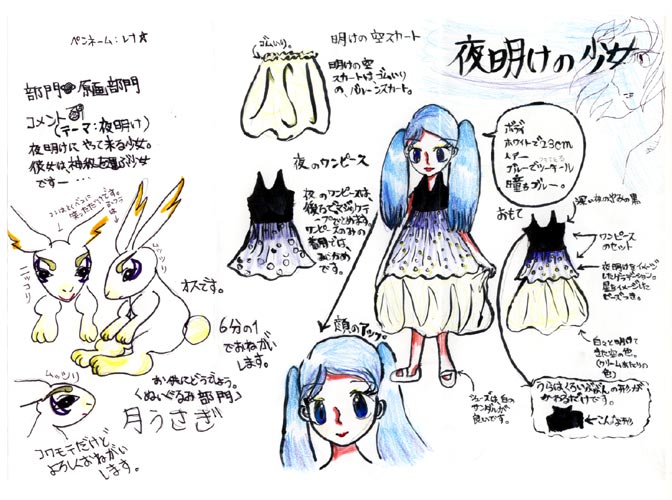 ペンネーム:レナ☆
部門 原画部門
コメント
(テーマ:夜明け)
夜明けにやって来る少女。
彼女は神秘を運ぶ少女
です……
ニッコリ
ムッツリ
オスです。
6分の1
でおねがい
します。
お供にどうでしょう。
(ぬいぐるみ部門)
月うさぎ
ムッツリ
コワモテだけど
よろしくおねがい
します。
ゴム入り。
明けの空スカート
明けの空
スカートは、ゴム入り
の、バルーンスカート。
夜のワンピース
夜のワンピースは、
です。
顔のアップ。
夜明けの少女
ボディ
ホワイトで23cm
ヘアー
ブルーでツーテール
瞳もブルー。
おもて
深い夜の空みの黒
ワンピース
のセット
夜明けをイメージ
したグラデーション。
星をイメージした
ビーズつき。
白々と明けて
きた空の色。
(クリームあたりの
色)
かわるだけです。
←こんな形
シューズは、白の
サンダルが
良いです。